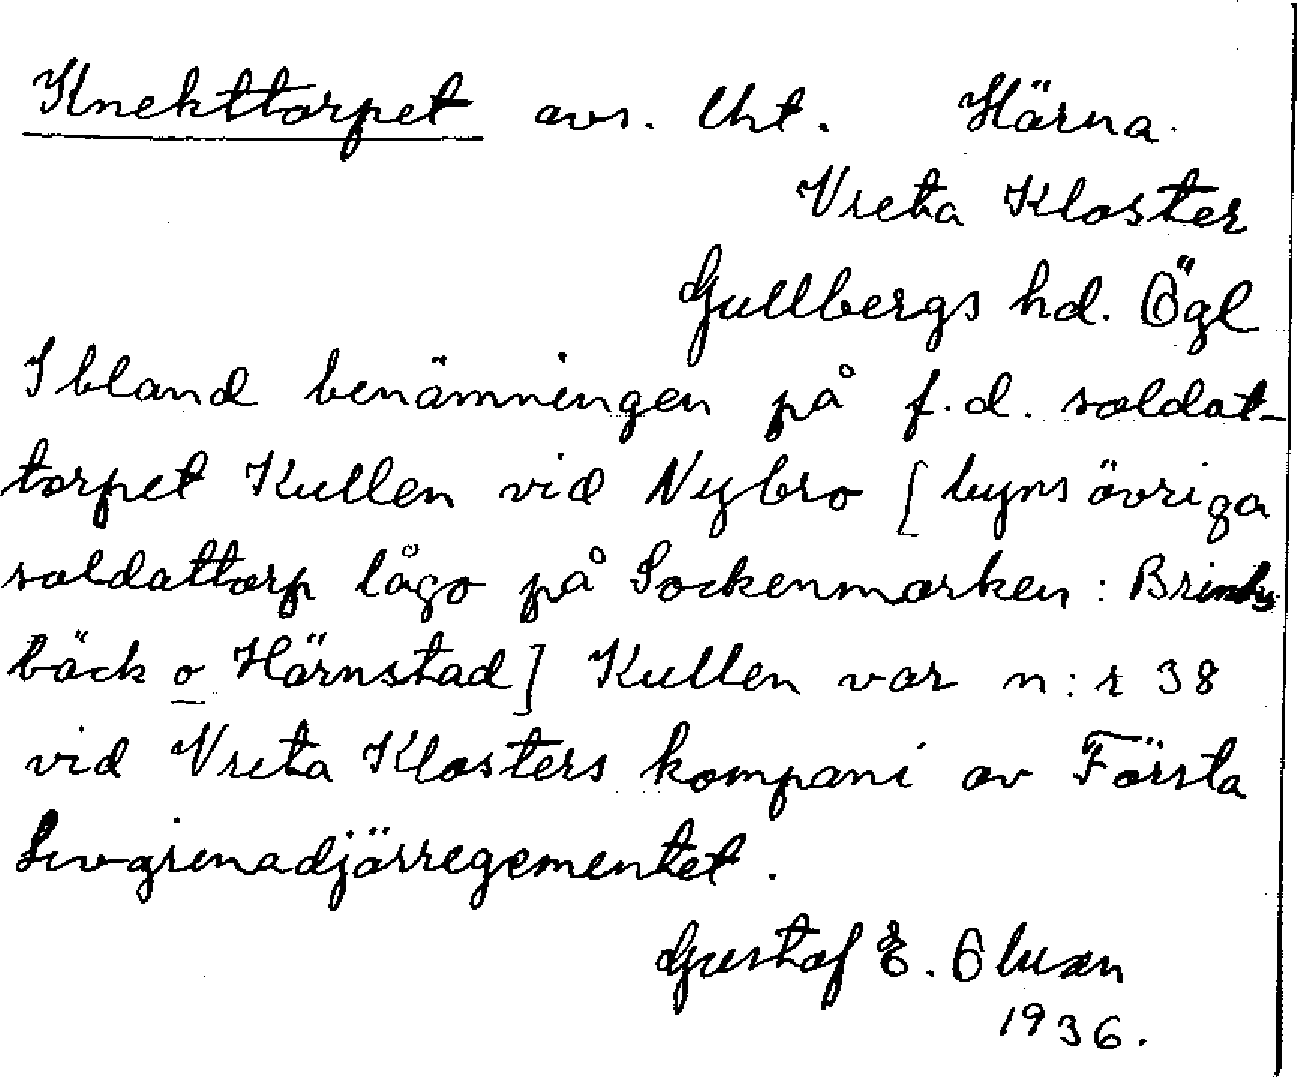 Knekttorpet avs. Uht. Härna.
Vreta Kloster
Gullbergs hd. Ögl
Ibland benämningen på f.d. soldat-
torpet Kullen vid Nybro [byns övriga
soldattorp lågo på Sockenmarken: Brinks
bäck o Härnstad] Kullen var n:r 38
vid Vreta Klosters kompani av Första
Livgrenadjärregementet.
Gustaf E.
1936.